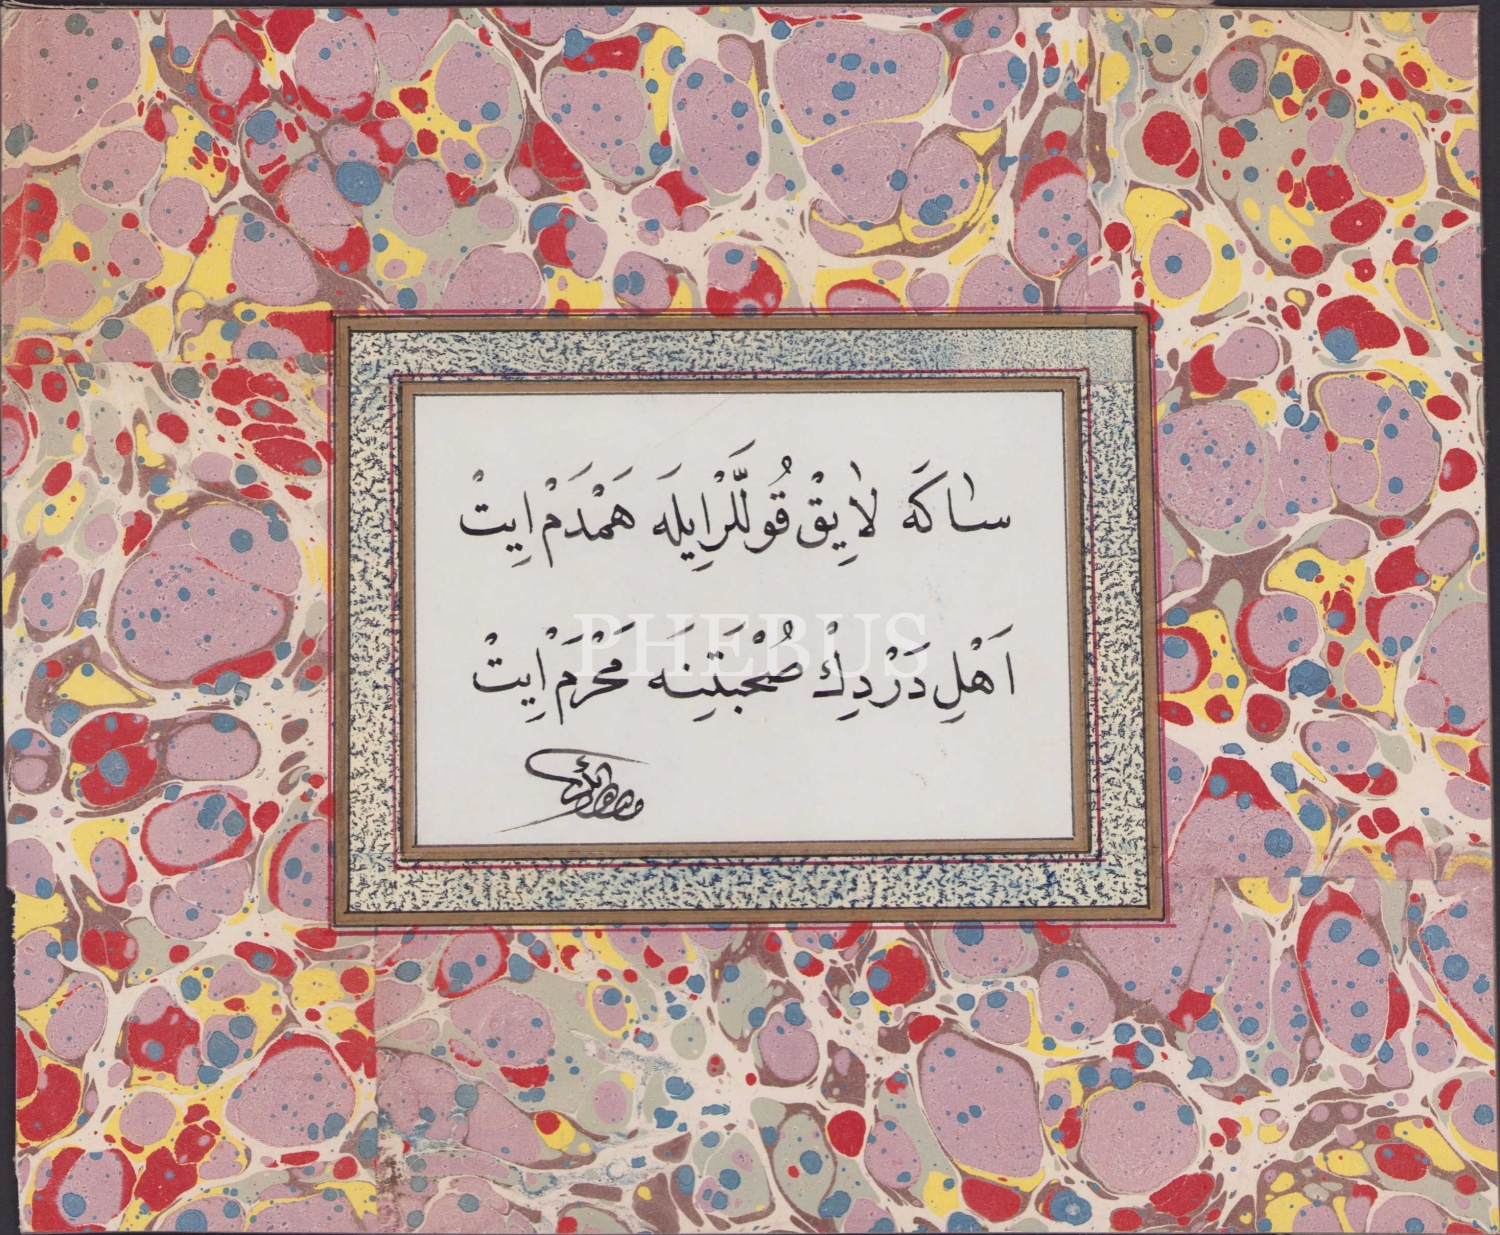 سٰاكَه لٰايِقْ قُولَّلَرْ اِيلَه هَمْدَمْ اِيتْ
اَهْلِ دَرْدِڭْ صُحْبَتِنَه مَحْرَمْ اِيتْ
PHEBUS